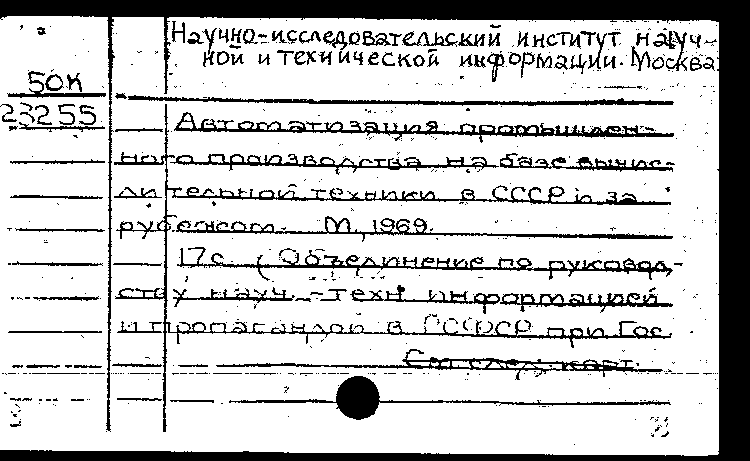 Научно-исследовательский институт науч-
ной и технической информации. Москва
50К
23255
Автоматизация промышлен-
ного производства на базе вычис-
лительной техники в СССР и за
рубежом. М., 1969.
17с. (Объединение по руковод-
ству науч.-техн. информацией
и пропагандой в РСФСР при Гос.
См. след. карт.